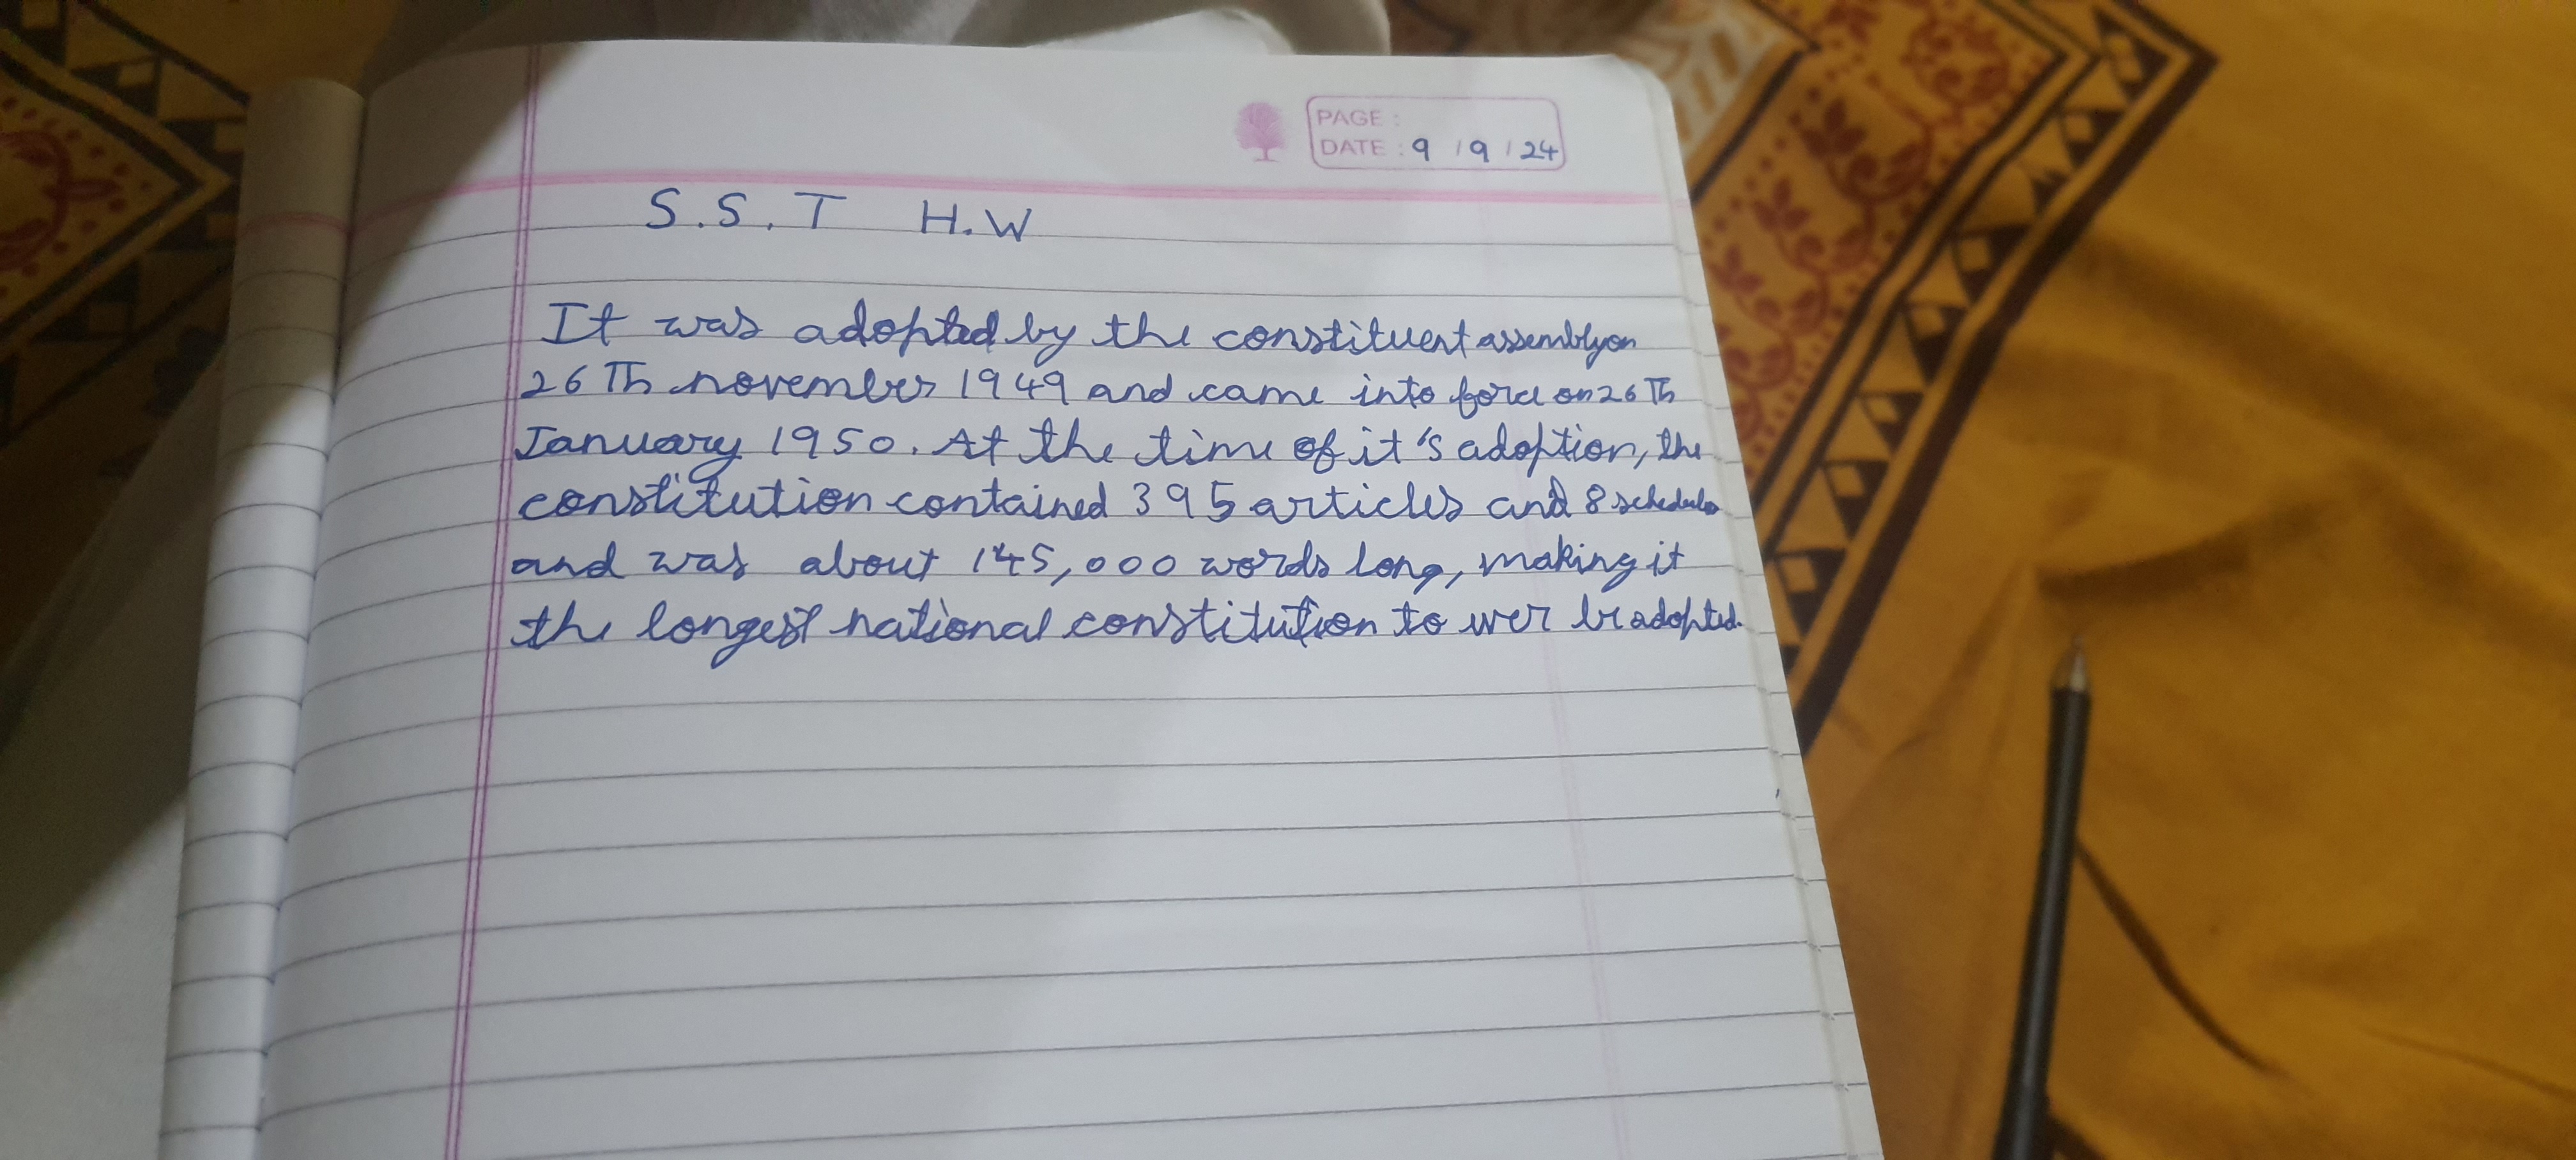 PAGE :
DATE : 9 / 9 / 24
S.S.T H.W
It was adopted by the constituent assembly on
26Th november 1949 and came into force on 26Th
January 1950. At the time of it's adoption, the
constitution contained 395 articles and 8 schedules
and was about 145,000 words long, making it
the longest national constitution to ever be adopted.